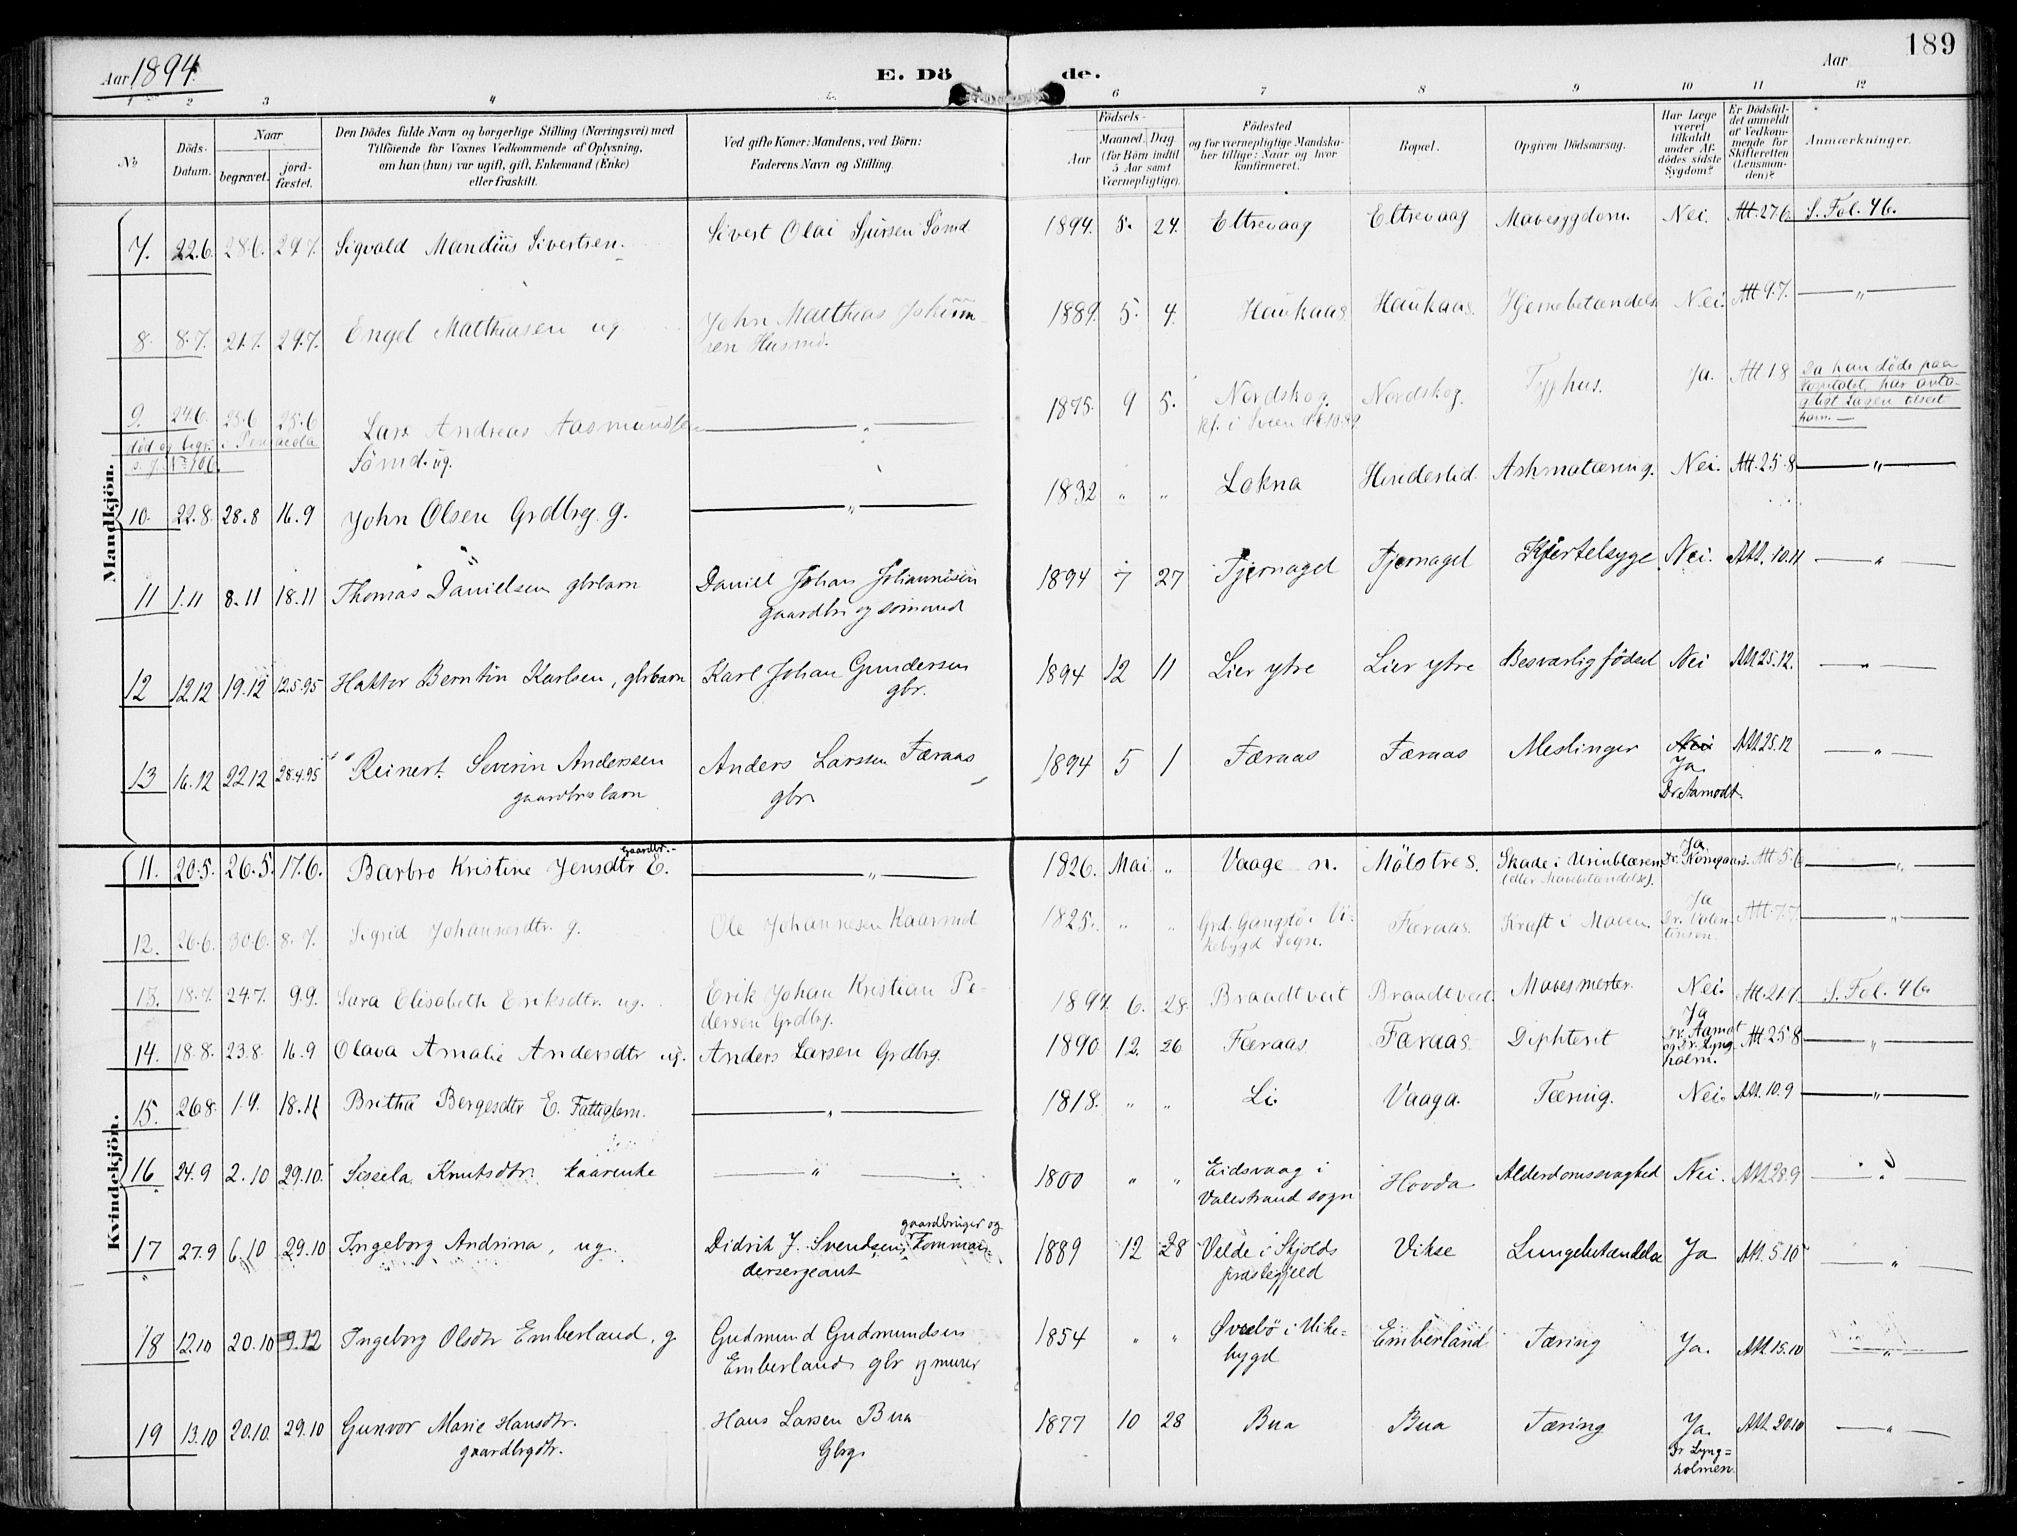 189
Aar 1894.
E. Dö de.
Aar
1 2 3 4 5 6 7 8 9 10 11 12
No
Döds-Datum.
Naar
begravet.
jord-fæstet.
Den Dödes fulde Navn og borgerlige Stilling (Næringsvei) med
Tilföiende for Voxnes Vedkommende af Oplysning,
om han (hun) var ugift, gift, Enkemand (Enke)
eller fraskilt.
Ved gifte Koner: Mandens, ved Börn:
Faderens Navn og Stilling.
Födsels-
Aar
Maaned. Dag
(for Börn indtil
5 Aar samt
Værnepligtige).
Födested
og for værnepligtige Mandska-
ber tillige: Naar og hvor
konfirmeret.
Bopæl.
Opgiven Dödsaarsag.
Har Læge
været
tilkaldt
under Af-
dödes sidste
Sygdom?
Er Dödsfal-
det anmeldt
af Vedkom-
mende for
Skifteretten
(Lensman-
den)?
Anmærkninger.
Mandkjön.
7. 22.6. 28.6. 29.7. Sigvald Mandius Sivertsen. Sivert Olai Sjursen Sömd 1894. 5. 24. Eltrevaag Eltrevaag Mavesygdom. Nei. Att 27.6 S. Fol. 46.
8. 8.7. 21.7. 29.7. Engel Matthiasen ug John Matthias Jokum-
sen Husmd. 1889. 5. 4. Haukaas Haukaas Hjernebetændelse Nei. Att 9.7. — " —
9. 24.6. 25.6 25.6 Lars Andreas Aasmundsen — " — 1875. 9 5. Nordskog Nordskog. Typhus. Ja. Att 1 8 Da han döde paa
död og begr. i
Sömd. ug.
kf. i Sveen
ham. —
10. 22.8. 28.8 16.9 John Olsen Grdbrg. g. — " — 1832 " " Lokna Hindesled. Asthmatæring. Nei. Att. 25.8 — " —
11 1.11 8.11 18.11 Thomas Danielsen gbrbarn Daniel Johan Johannesen
gaardbr og sömand 1894 7 27 Tjernagel Tjernagel Kjertelsyge Nei. Att. 10.11 — " —
12 12.12 19.12 12.5.95 Haktor Berntin Karlsen, gbrbarn Karl Johan Gundersen
gbr. 1894 12 11 Lier ytre Lier ytre Besværlig födsel Nei Att 25.12. — " —
13 16.12 22 12 28.4.95 Reinert Severin Anderssen
gaardbrs barn Anders Larssen Færaas
gbr 1894 5 1 Færaas Færaas Meslinger Nei
Ja
Dr. Aamodt. Att 25.12 — " —
Kvindekjön.
11. 20.5. 26.5. 17.6. Barbro Kristine Jensdtr Gaardbr.- E. — " — 1826. Mai. " Vaage n. Mölstre s. Skade i Urinblæren
(eller Mavebetændelse). Ja Att 5.6 — " —
12. 26.6. 30.6. 8.7. Sigrid Johannesdtr. g. Ole Johannesen Kaarmd 1825. " " Grd. Gangstö i Vi-
kebygd Sogn. Færaas. Kræft i Maven. Ja
Dr. Valen-
tinsen. Att. 7.7. — " —
13. 18.7. 24.7. 9.9. Sara Elisabeth Eriksdtr. ug. Erik Johan Kristian Pe-
dersen Grdbrg. 1894. 6. 28. Braadtveit Braadtveit. Mavesmerter. Nei. Att. 21.7. S. Fol. 46.
14. 18.8. 23.8. 16.9 Olava Amalie Andersdtr ug. Anders Larsen Grdbrg. 1890. 12. 26 Færaas Færaas Diphterit Ja
Dr. Aamot
og Dr. Lyng-
holm. Att 25.8 — " —
15. 26.8. 1.9. 18.11 Britha Bergesdtr E. Fattiglem. — " — 1818. " " Li. Vaaga. Tæring. Nei. Att. 10.9 — " —
16 24.9 2.10 29.10. Sissela Knutsdtr. kaarenke — " — 1800 " " Eidsvaag i
Valestrand sogn Hovda Alderdomssvaghed Nei. Att 28.9 — " —
17 27.9 6.10 29.10 Ingeborg Andrina, ug. Didrik J. Svendsen, gaardbruger og
Komman-
dersergeant 1889 12 28 Velde i Skjolds
præstegjeld Vikse Lungebetændelse Ja Att. 5.10 — " —
18 12.10 20.10 9.12 Ingeborg Olsdtr Emberland, g. Gudmund Gudmundsen
Emberland, gbr og murer 1854 " " Øvrebö i Vike-
bygd Emberland Tæring Ja. Att. 15.10 — " —
19 13.10 20.10. 29.10 Gunvor Marie Hansdtr.
gaardbrgdtr. Hans Larsen Bua
Gbrg. 1877 10 28 Bua Bua Tæring Ja
Dr Lyng=
holmen. Att. 20.10 — " —